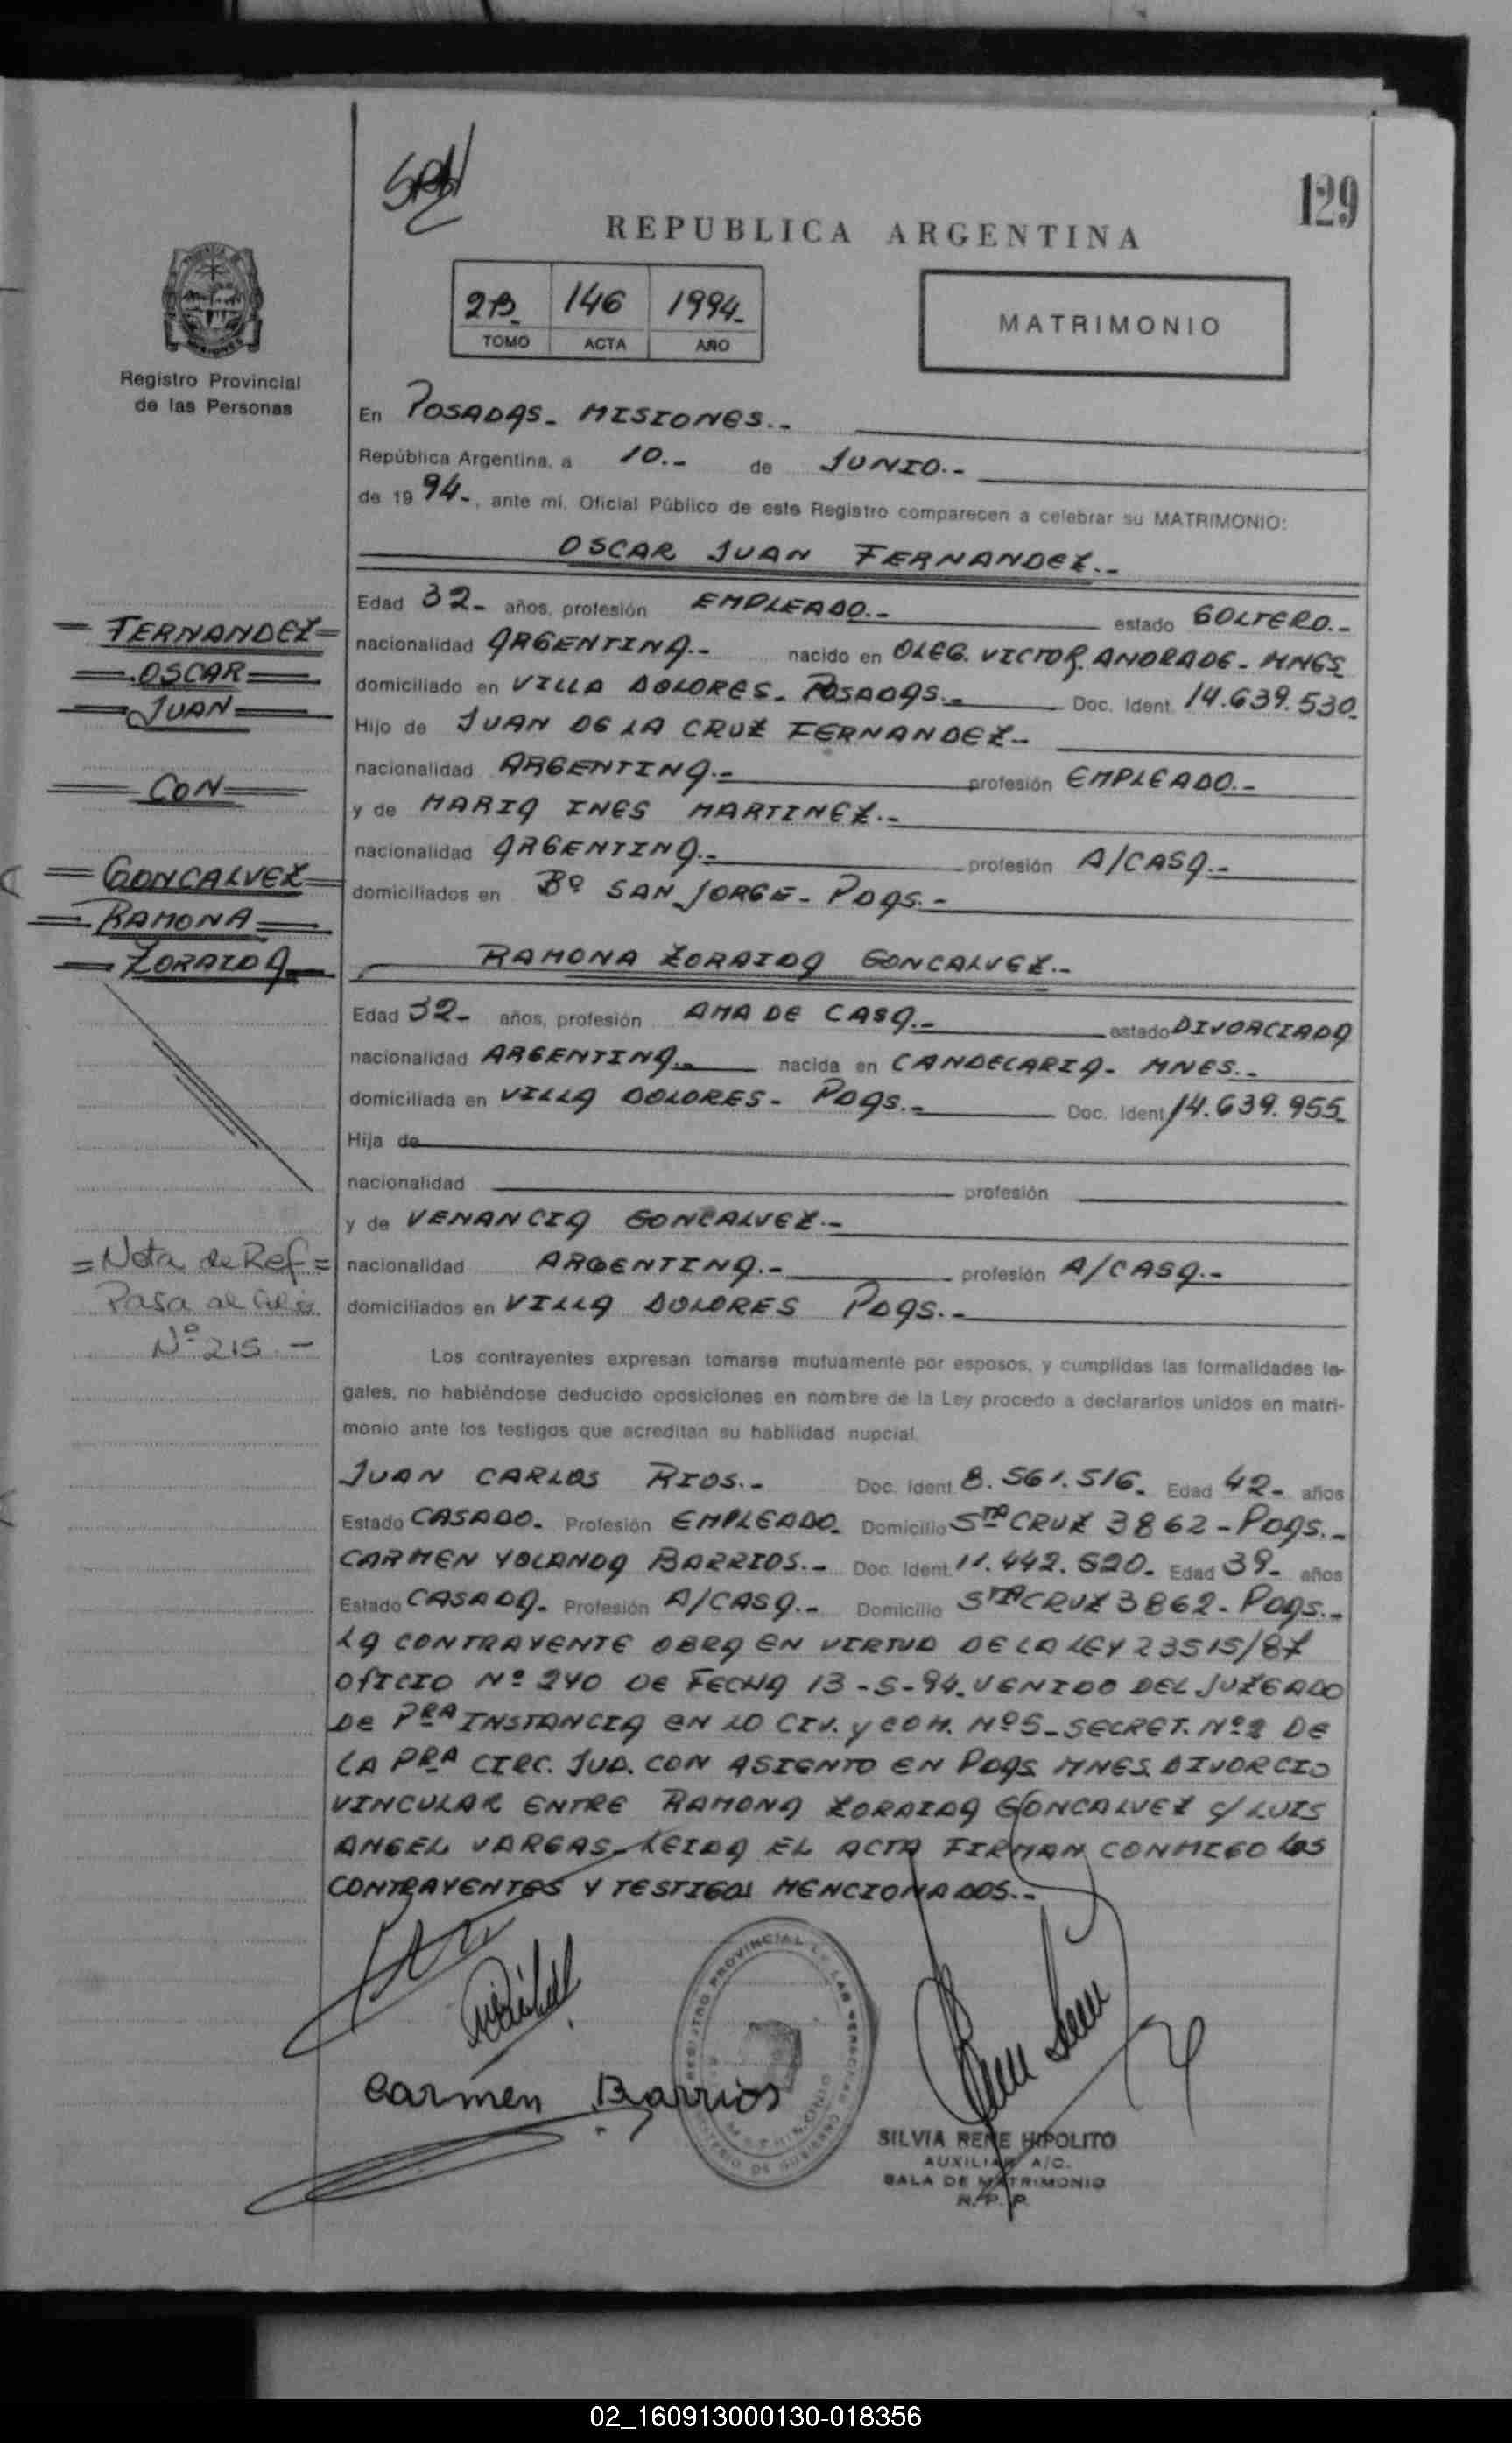 129
REPUBLICA ARGENTINA
2B_ 146 1994_
TOMO ACTA AÑO
MATRIMONIO
Registro Provincial
de las Personas
En POSADAS_ MISIONES._
República Argentina, a 10._ de JUNIO._
de 19 94_, ante mí, Oficial Público de este Registro comparecen a celebrar su MATRIMONIO:
OSCAR JUAN FERNANDEZ._
Edad 32_ años, profesión EMPLEADO._ estado SOLTERO._
nacionalidad ARGENTINA._ nacido en OLEG. VICTOR ANDRADE_ MNES
domiciliado en VILLA DOLORES_ POSADAS._ Doc. Ident. 14.639.530_
Hijo de JUAN DE LA CRUZ FERNANDEZ_
nacionalidad ARGENTINA._ profesión EMPLEADO._
y de MARIA INES MARTINEZ._
nacionalidad ARGENTINA._ profesión A/CASA._
domiciliados en Bº SAN JORGE_ PDAS._
RAMONA ZORAIDA GONCALVEZ._
Edad 32_ años, profesión AMA DE CASA._ estado DIVORCIADA
nacionalidad ARGENTINA._ nacida en CANDELARIA_ MNES._
domiciliada en VILLA DOLORES_ PDAS._ Doc. Ident. 14.639.955_
Hija de
nacionalidad profesión
y de VENANCIA GONCALVEZ._
nacionalidad ARGENTINA._ profesión A/CASA._
domiciliados en VILLA DOLORES PDAS._
= FERNANDEZ =
= OSCAR =
= JUAN =
= CON =
= GONCALVEZ =
= RAMONA =
= ZORAIDA =
= Nota de Ref =
Pasa al folio
Nº 215._
Los contrayentes expresan tomarse mutuamente por esposos, y cumplidas las formalidades le-
gales, no habiéndose deducido oposiciones en nombre de la Ley procedo a declararlos unidos en matri-
monio ante los testigos que acreditan su habilidad nupcial.
JUAN CARLOS RIOS._ Doc. Ident. 8.561.516_ Edad 42_ años
Estado CASADO_ Profesión EMPLEADO_ Domicilio STA CRUZ 3862_ PDAS._
CARMEN YOLANDA BARRIOS._ Doc. Ident. 11.442.520_ Edad 39_ años
Estado CASADA_ Profesión A/CASA._ Domicilio STA CRUZ 3862_ PDAS._
LA CONTRAYENTE OBRA EN VIRTUD DE LA LEY 23515/87
OFICIO Nº 240 DE FECHA 13-5-94_ VENIDO DEL JUZGADO
DE PRA INSTANCIA EN LO CIV. Y COM. Nº5_ SECRET. Nº2 DE
LA PRA CIRC. JUD. CON ASIENTO EN PDAS MNES DIVORCIO
VINCULAR ENTRE RAMONA ZORAIDA GONCALVEZ C/ LUIS
ANGEL VARGAS_ LEIDA EL ACTA FIRMAN CONMIGO LOS
CONTRAYENTES Y TESTIGOS MENCIONADOS._
Carmen Barrios
REGISTRO PROVINCIAL DE LAS PERSONAS
MATRIMONIO
SILVIA RENE HIPOLITO
AUXILIAR A/C.
SALA DE MATRIMONIO
R. P. P.
02_160913000130-018356